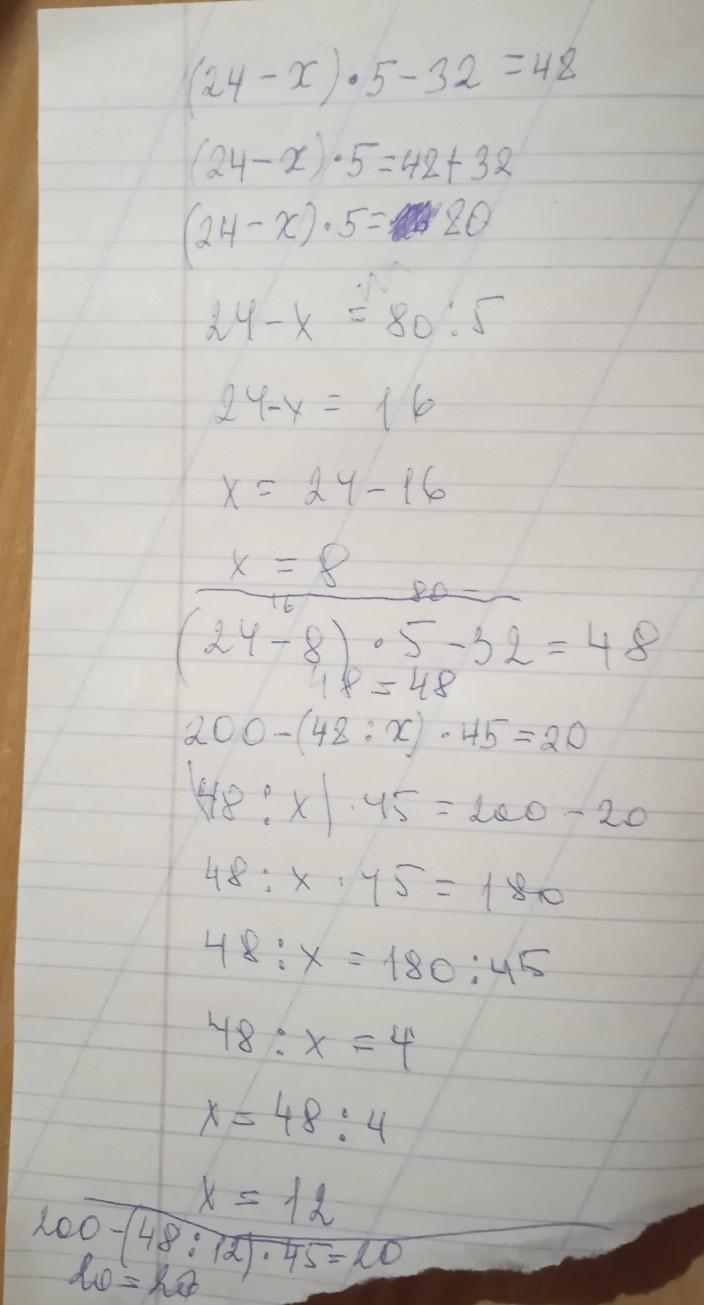 (24-x)·5-32=48
(24-x)·5=48+32
(24-x)·5=80
24-x=80:5
24-x=16
x=24-16
x=8
16 80
(24-8)·5-32=48
48=48
200-(48:x)·45=20
(48:x)·45=200-20
48:x·45=180
48:x=180:45
48:x=4
x=48:4
x=12
200-(48:12)·45=20
20=20